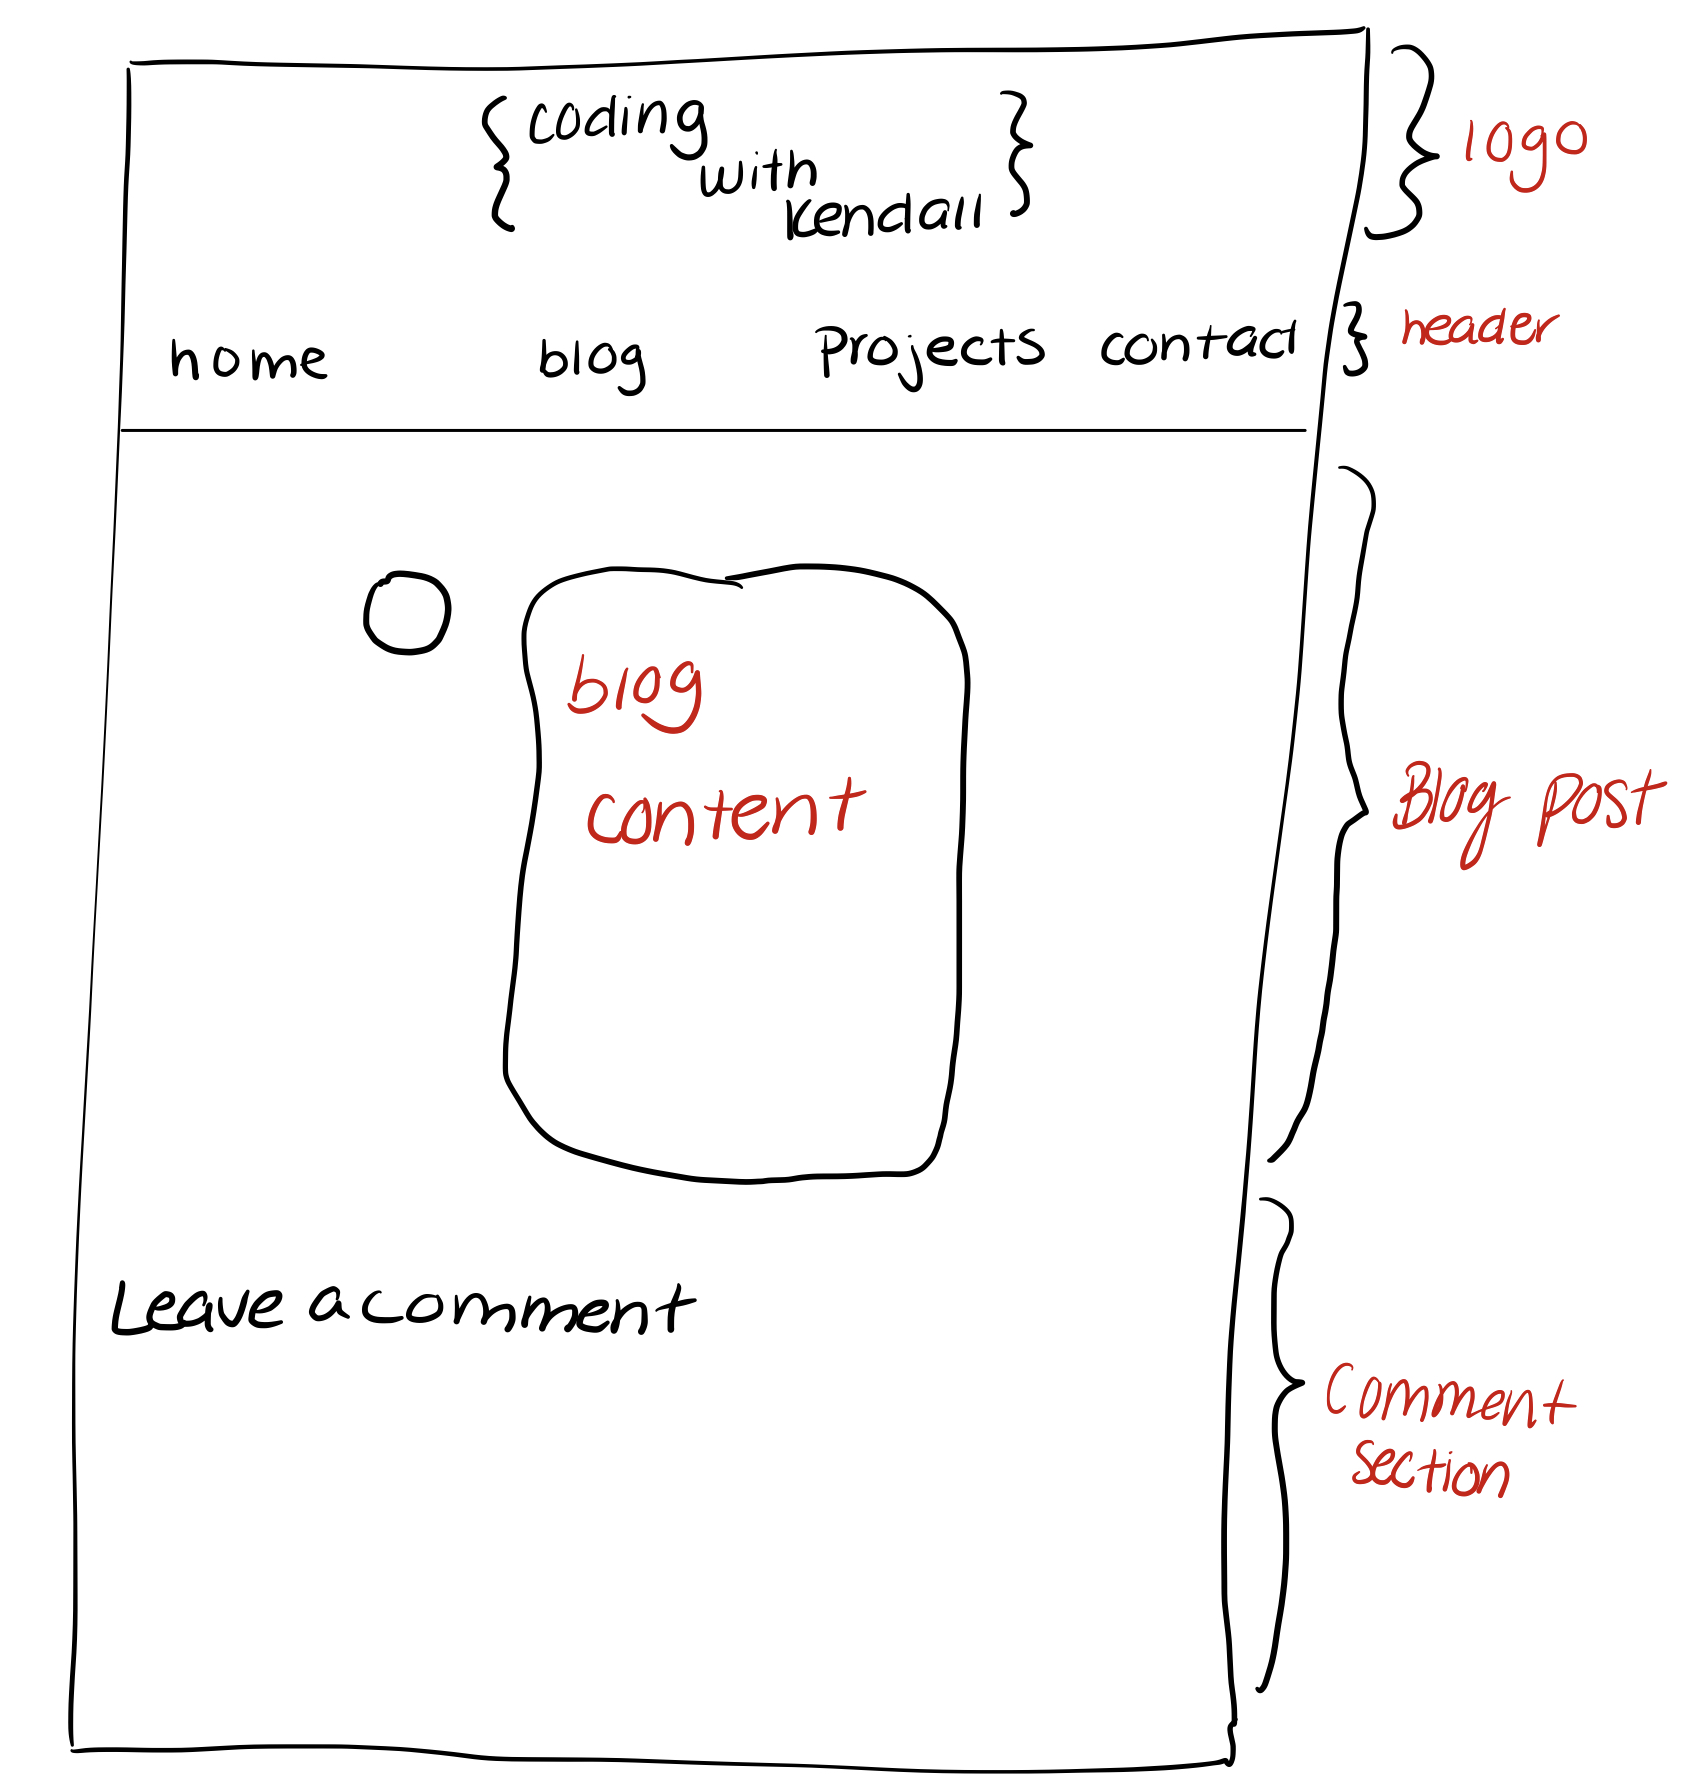 { coding }
with
kendall
logo
home blog Projects contact
header
blog
content
Blog post
Leave a comment
Comment
section